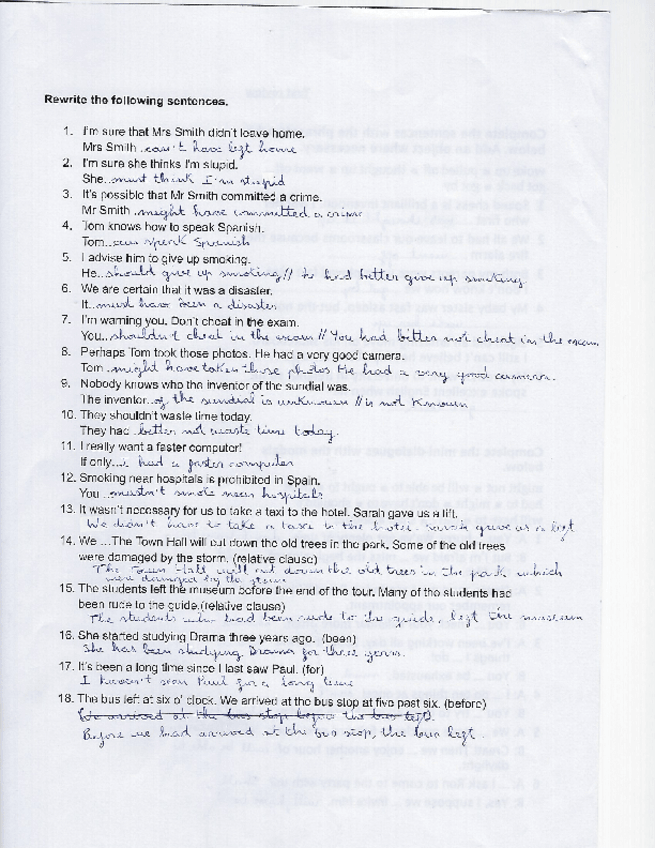 Rewrite the following sentences.
1. I'm sure that Mrs Smith didn't leave home.
Mrs Smith ..can't have left home
2. I'm sure she thinks I'm stupid.
She...must think I'm stupid
3. It's possible that Mr Smith committed a crime.
Mr Smith ..might have committed a crime
4. Tom knows how to speak Spanish.
Tom...can speak Spanish
5. I advise him to give up smoking.
He...should give up smoking // he had better give up smoking.
6. We are certain that it was a disaster.
It...must have been a disaster
7. I'm warning you. Don't cheat in the exam.
You...shouldn't cheat in the exam // You had better not cheat in the exam
8. Perhaps Tom took those photos. He had a very good camera.
Tom ..might have taken those photos He had a very good camera.
9. Nobody knows who the inventor of the sundial was.
The inventor...of the sundial is unknown // is not known
10. They shouldn't waste time today.
They had ..better not waste time today.
11. I really want a faster computer!
If only...I had a faster computer
12. Smoking near hospitals is prohibited in Spain.
You ..mustn't smoke near hospitals
13. It wasn't necessary for us to take a taxi to the hotel. Sarah gave us a lift.
We didn't have to take a taxi to the hotel. Sarah gave us a lift
14. We ...The Town Hall will cut down the old trees in the park. Some of the old trees
were damaged by the storm. (relative clause)
The Town Hall will cut down the old trees in the park which
were damaged by the storm
15. The students left the museum before the end of the tour. Many of the students had
been rude to the guide.(relative clause)
The students who had been rude to the guide, left the museum
16. She started studying Drama three years ago. (been)
She has been studying Drama for three years.
17. It's been a long time since I last saw Paul. (for)
I haven't seen Paul for a long time
18. The bus left at six o' clock. We arrived at the bus stop at five past six. (before)
We arrived at the bus stop before the bus left.
Before we had arrived at the bus stop, the bus left.